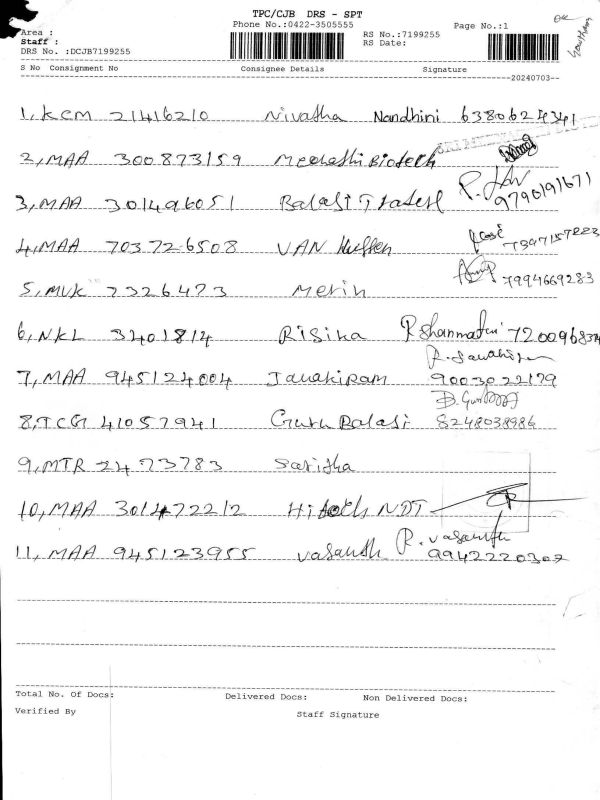 TPC/CJB DRS - SPT
Phone No.:0422-3505555
Page No.:1
Area :
Staff :
DRS No. :DCJB7199255
RS No.:7199255
RS Date:
S No Consignment No Consignee Details Signature
20240703
1, KCM 21416210 Nivatha Nandhini 6380624341
2, MAA 300873159 Meenathi Biotech
3, MAA 301496051 Balaji Traders 9790191671
4, MAA 703726508 VAN Huffen 7397157223
5, MVK 7326473 Merin 7994669283
6, NKL 3401814 Risika P. Shanmathi
7, MAA 945124004 Janakiram R. Janakiram
9003022179
8, TCG 41057941 Guru Balaji 8248038986
9, MTR 2473783 Saritha
10, MAA 301472212 Hitech NDT
11, MAA 945123955 Vasanth R. Vasanth
9942220302
Total No. Of Docs: Delivered Docs: Non Delivered Docs:
Verified By Staff Signature